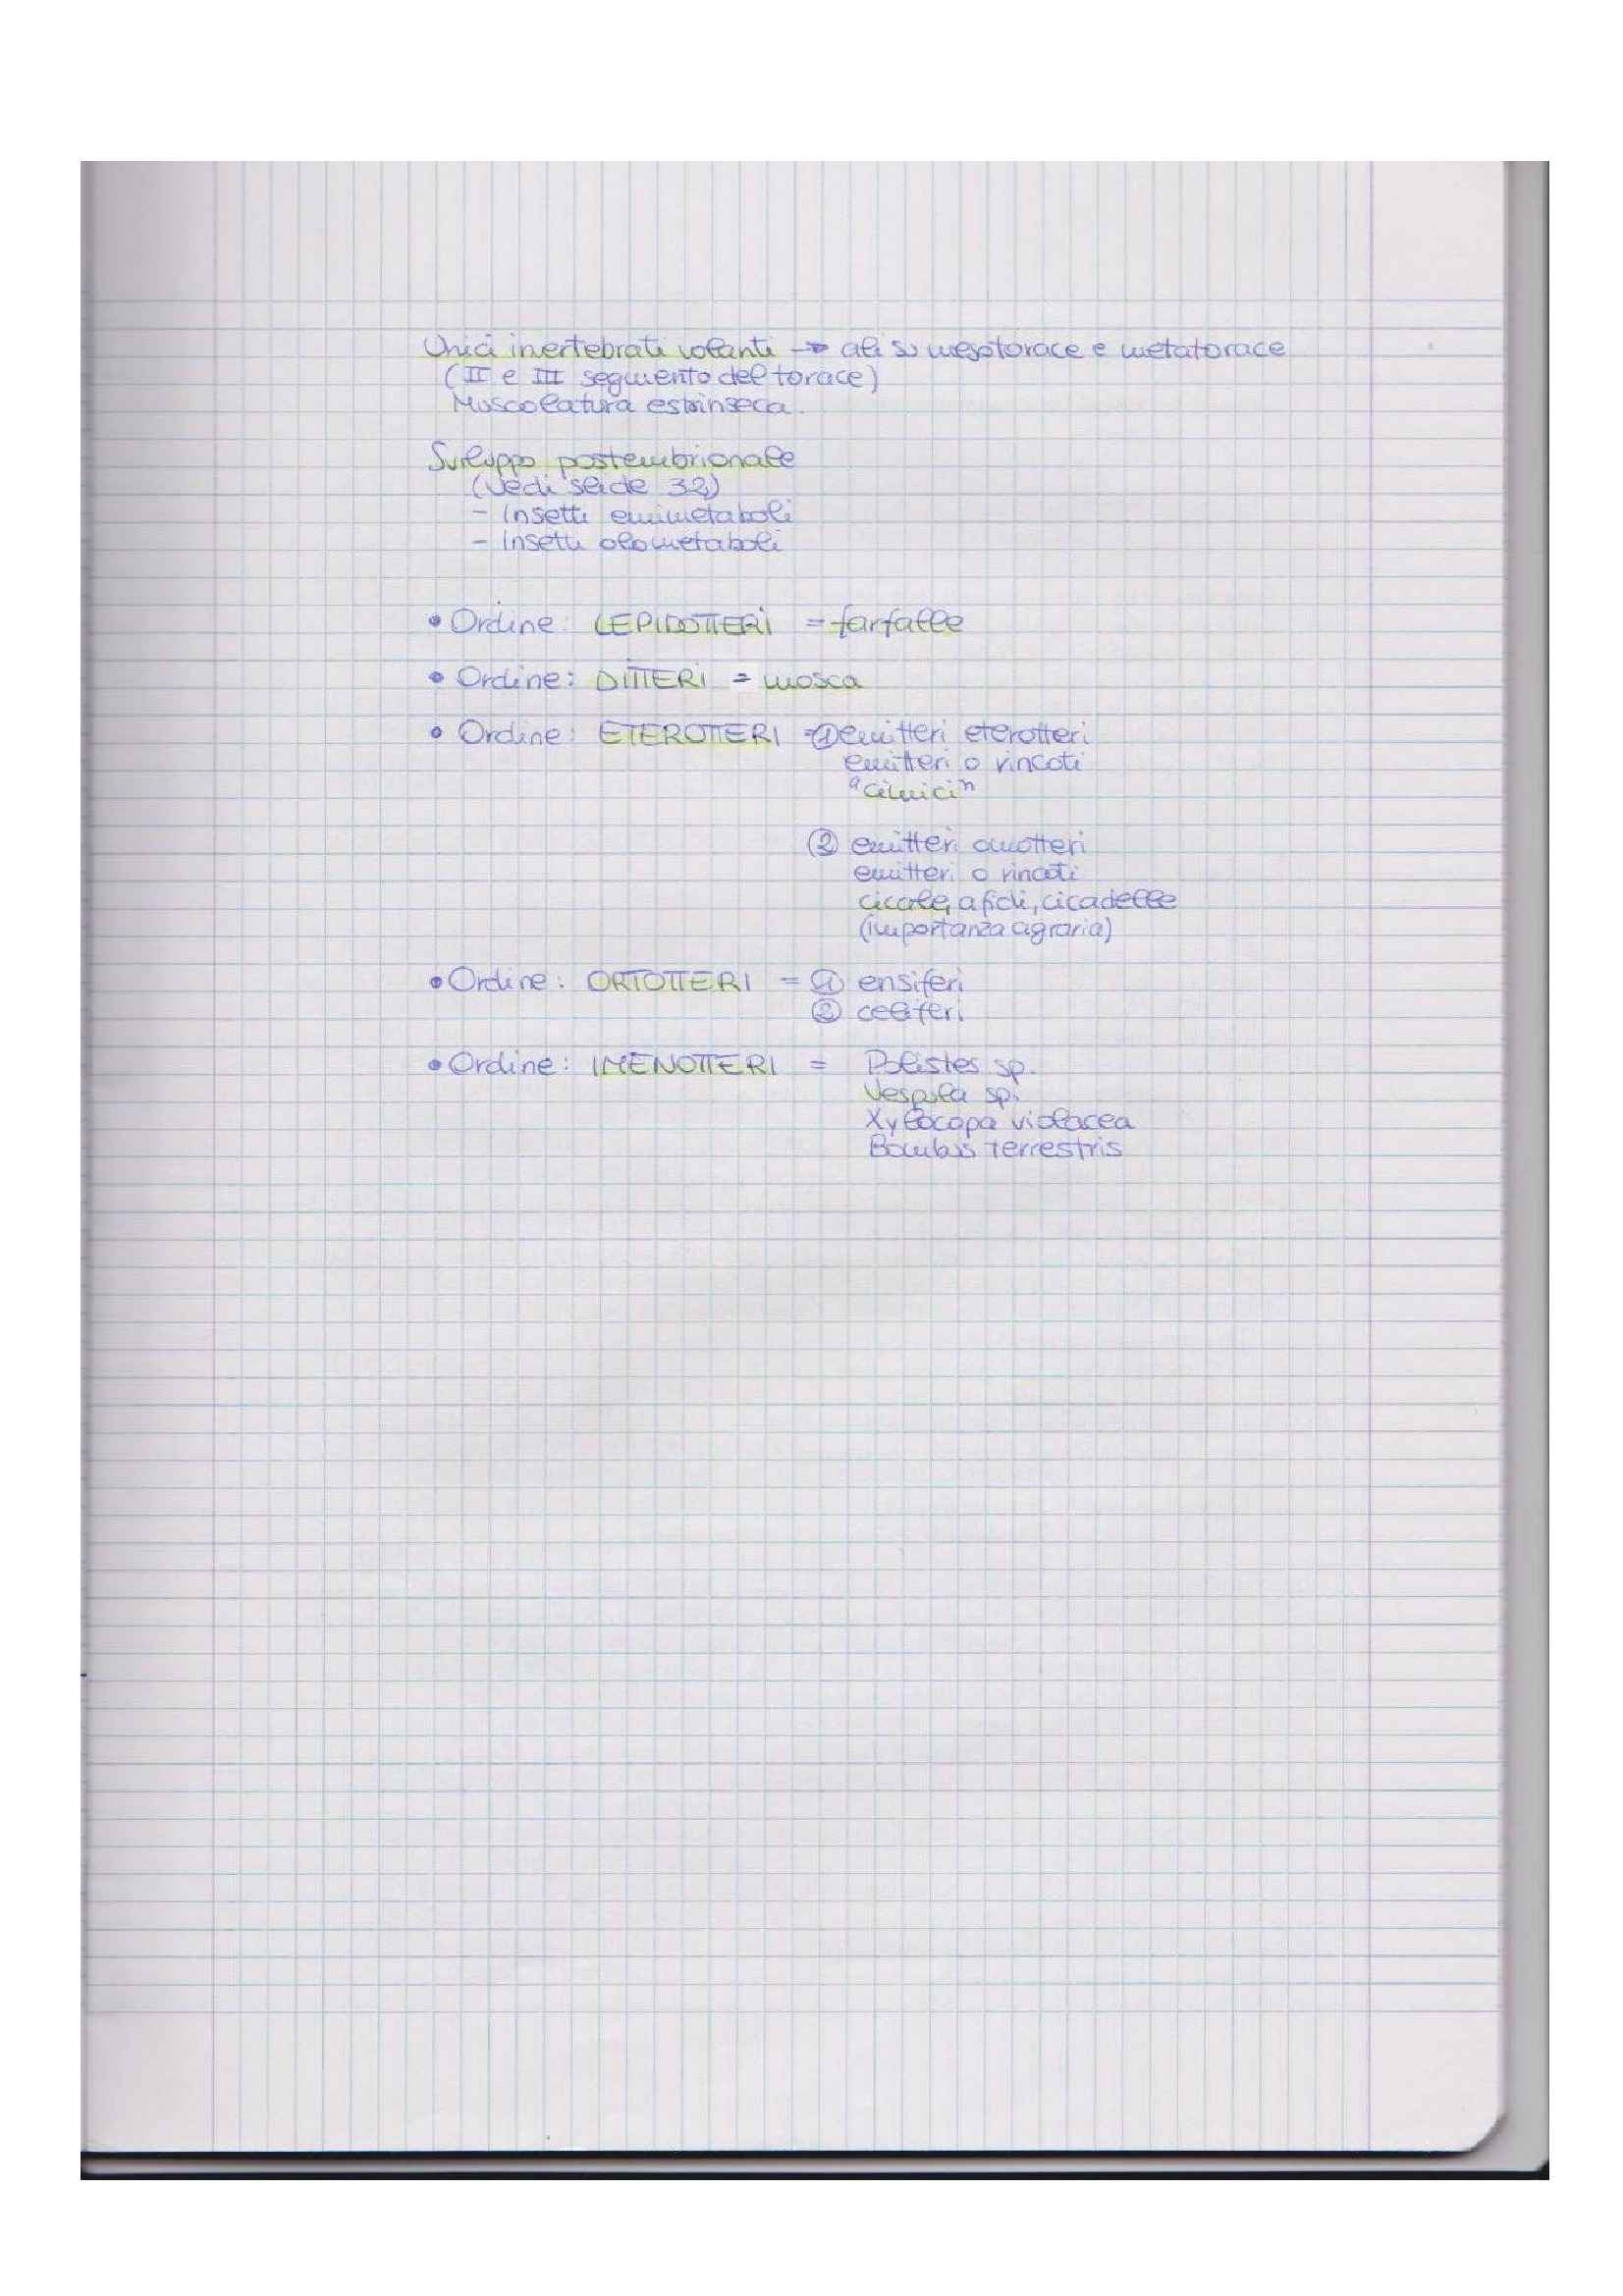 Unici invertebrati volanti → ali su mesotorace e metatorace
(II e III segmento del torace)
Muscolatura estrinseca.
Sviluppo postembrionale
(vedi slide 32)
- Insetti emimetaboli
- Insetti olometaboli
• Ordine: LEPIDOTTERI = farfalle
• Ordine: DITTERI = mosca
• Ordine: ETEROTTERI = ① emitteri eterotteri
emitteri o rincoti
"cimici"
② emitteri omotteri
emitteri o rincoti
cicale, afidi, cicadelle
(importanza agraria)
• Ordine: ORTOTTERI = ① ensiferi
② celiferi
• Ordine: IMENOTTERI = Polistes sp.
Vespula sp.
Xylocopa violacea
Bombus terrestris